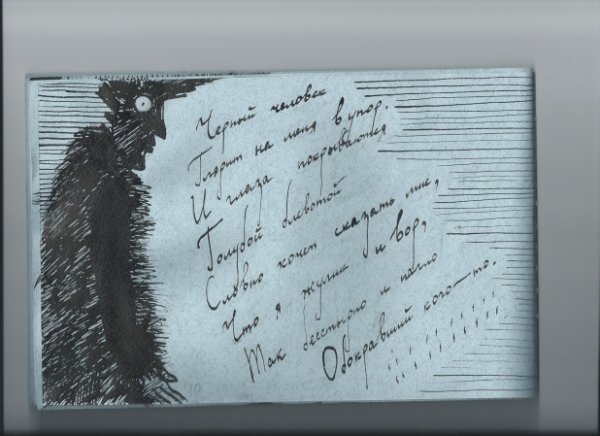 Черный человек
Глядит на меня в упор.
И глаза покрываются
Голубой блевотой
Словно хочет сказать мне,
Что я жулик и вор,
Так бесстыдно и нагло
Обокравший кого-то.